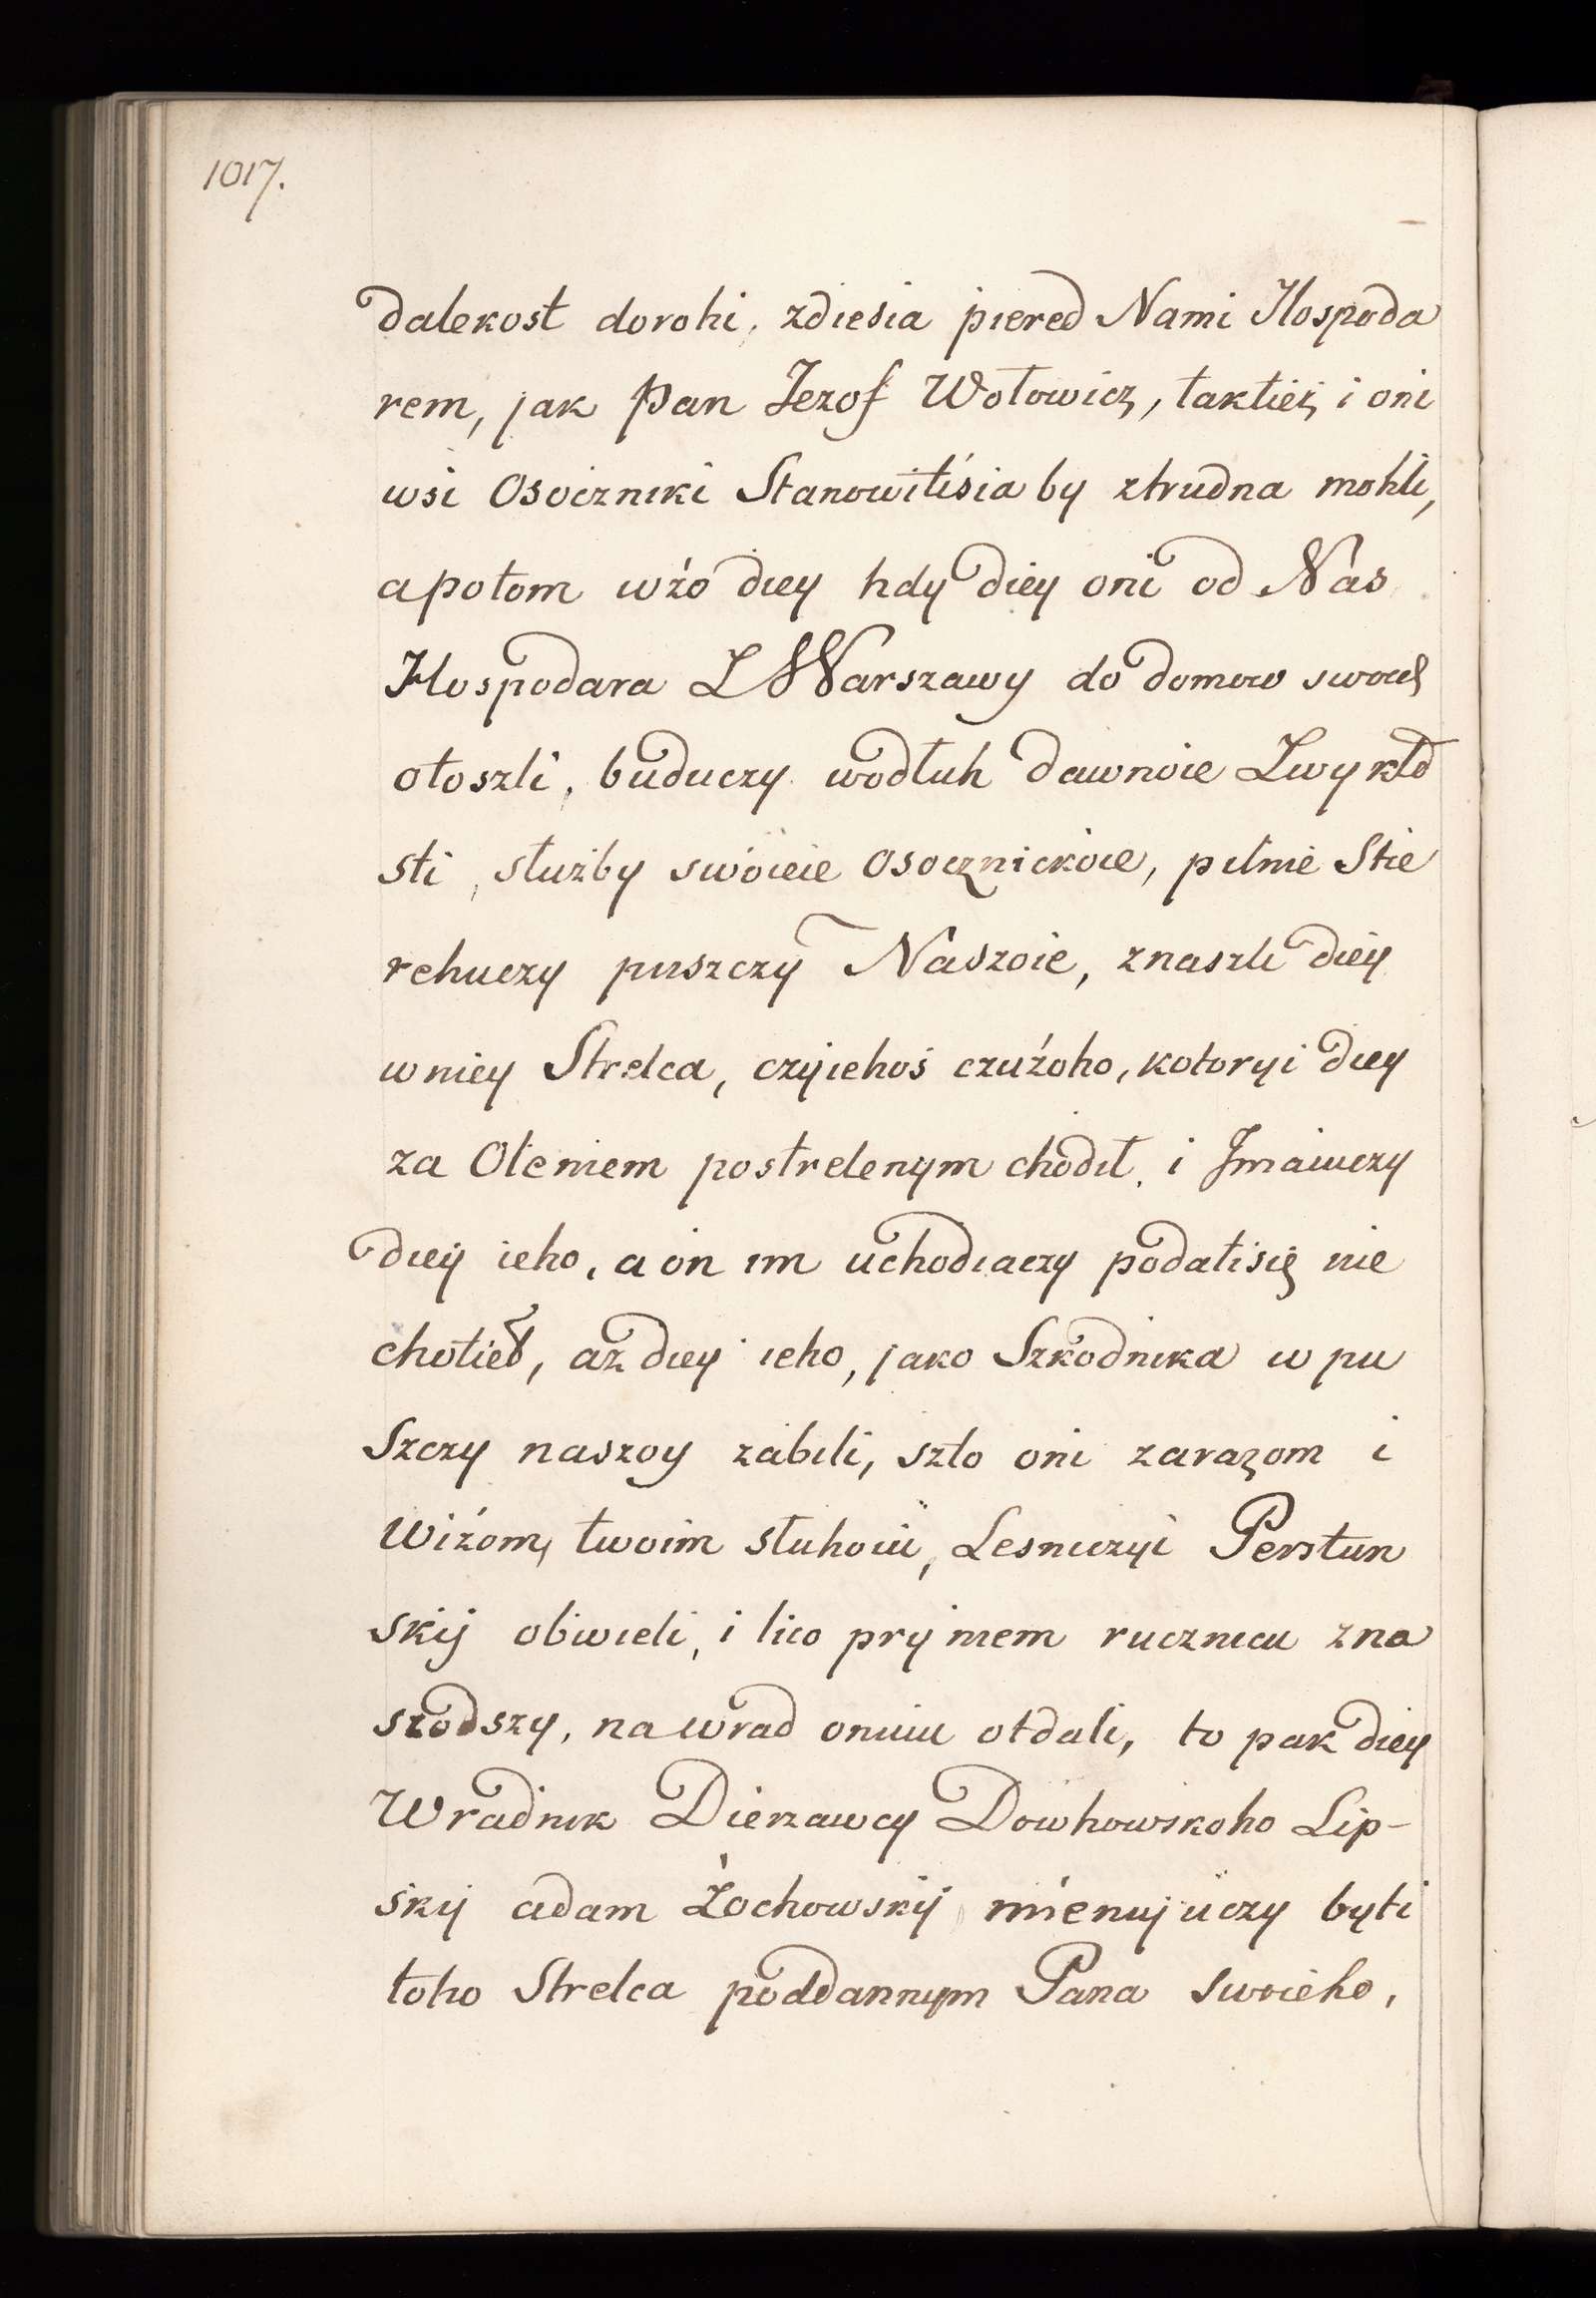 1017.
dalekost dorohi, zdiesia piered Nami Hospoda
rem, jak Pan Jezof Wołowicz, taktież i oni
wsi Osoczniki Stanowitiśia by ztrudna mohli,
apotom wżo diey hdy diey oni od Nas
Hospodara Z Warszawy do domow swoich
otoszli, buduczy wodłuh dawnoie Zwykło
sti, służby swoieie Osocznickoie, pilnie Stie
rehuczy puszczy Naszoie, znaszli diey
wniey Strelca, czyiehoś czużoho, kotoryi diey
za Oleniem postrelenym chodił, i Jmaiuczy
diey ieho, a on im uchodiaczy podatisię nie
chotieł, aż diey ieho, jako Szkodnika w pu
Szczy naszoy zabili, szto oni zarazom i
Wiżom, twoim słuhoiu, Lesniczyi Perstun
skij obwieli, i lico pry niem rucznicu zna
szodszy, nawrad onuiu otdali, to pak diey
Wradnik Dierzawcy Dowhowskoho Lip-
skij adam Żochowskij mienujuczy byti
toho Strelca poddannym Pana Swoieho,